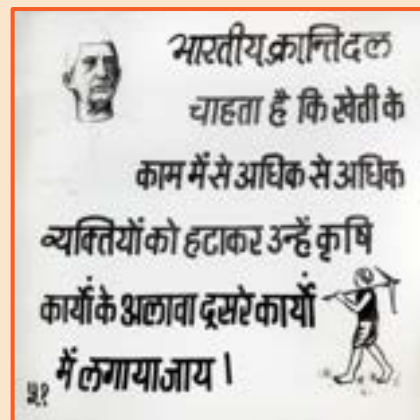 भारतीय क्रान्ति दल
चाहता है कि खेती के
काम में से अधिक से अधिक
व्यक्तियों को हटाकर उन्हें कृषि
कार्यों के अलावा दूसरे कार्यों
में लगाया जाय।